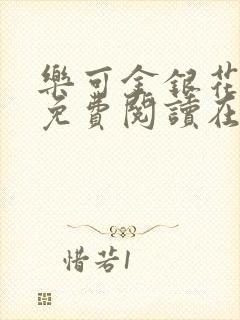 樂可金銀花
免費閱讀在
惜若1